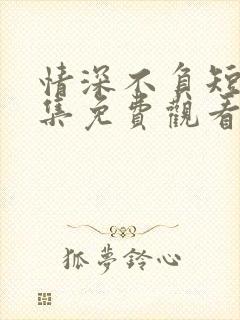 情深不負短
集免費觀看
狐夢鈴心